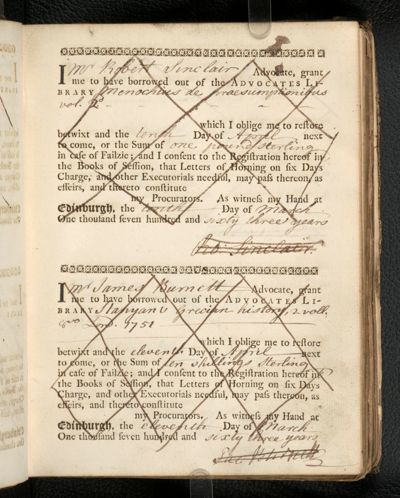 I Mr Robert Sinclair Advocate, grant
me to have borrowed out of the ADVOCATES LI-
BRARY Menochius de praesumptionibus
vol. 2d
which I oblige me to reſtore
betwixt and the tenth Day of April next
to come, or the Sum of one pound sterling
in caſe of Failzie; and I conſent to the Regiſtration hereof in
the Books of Seſſion, that Letters of Horning on ſix Days
Charge, and other Executorials needful, may paſs thereon, as
effeirs, and thereto conſtitute
my Procurators. As witneſs my Hand at
Edinburgh, the tenth Day of March
One thouſand ſeven hundred and sixty three years
Rob. Sinclair.
I Mr James Burnett Advocate, grant
me to have borrowed out of the ADVOCATES LI-
BRARY Stanyan's Grecian history, 2 voll.
8vo Lond. 1751
which I oblige me to reſtore
betwixt and the eleventh Day of April next
to come, or the Sum of ten shillings sterling
in caſe of Failzie; and I conſent to the Regiſtration hereof in
the Books of Seſſion, that Letters of Horning on ſix Days
Charge, and other Executorials needful, may paſs thereon, as
effeirs, and thereto conſtitute
my Procurators. As witneſs my Hand at
Edinburgh, the eleventh Day of March
One thouſand ſeven hundred and sixty three years